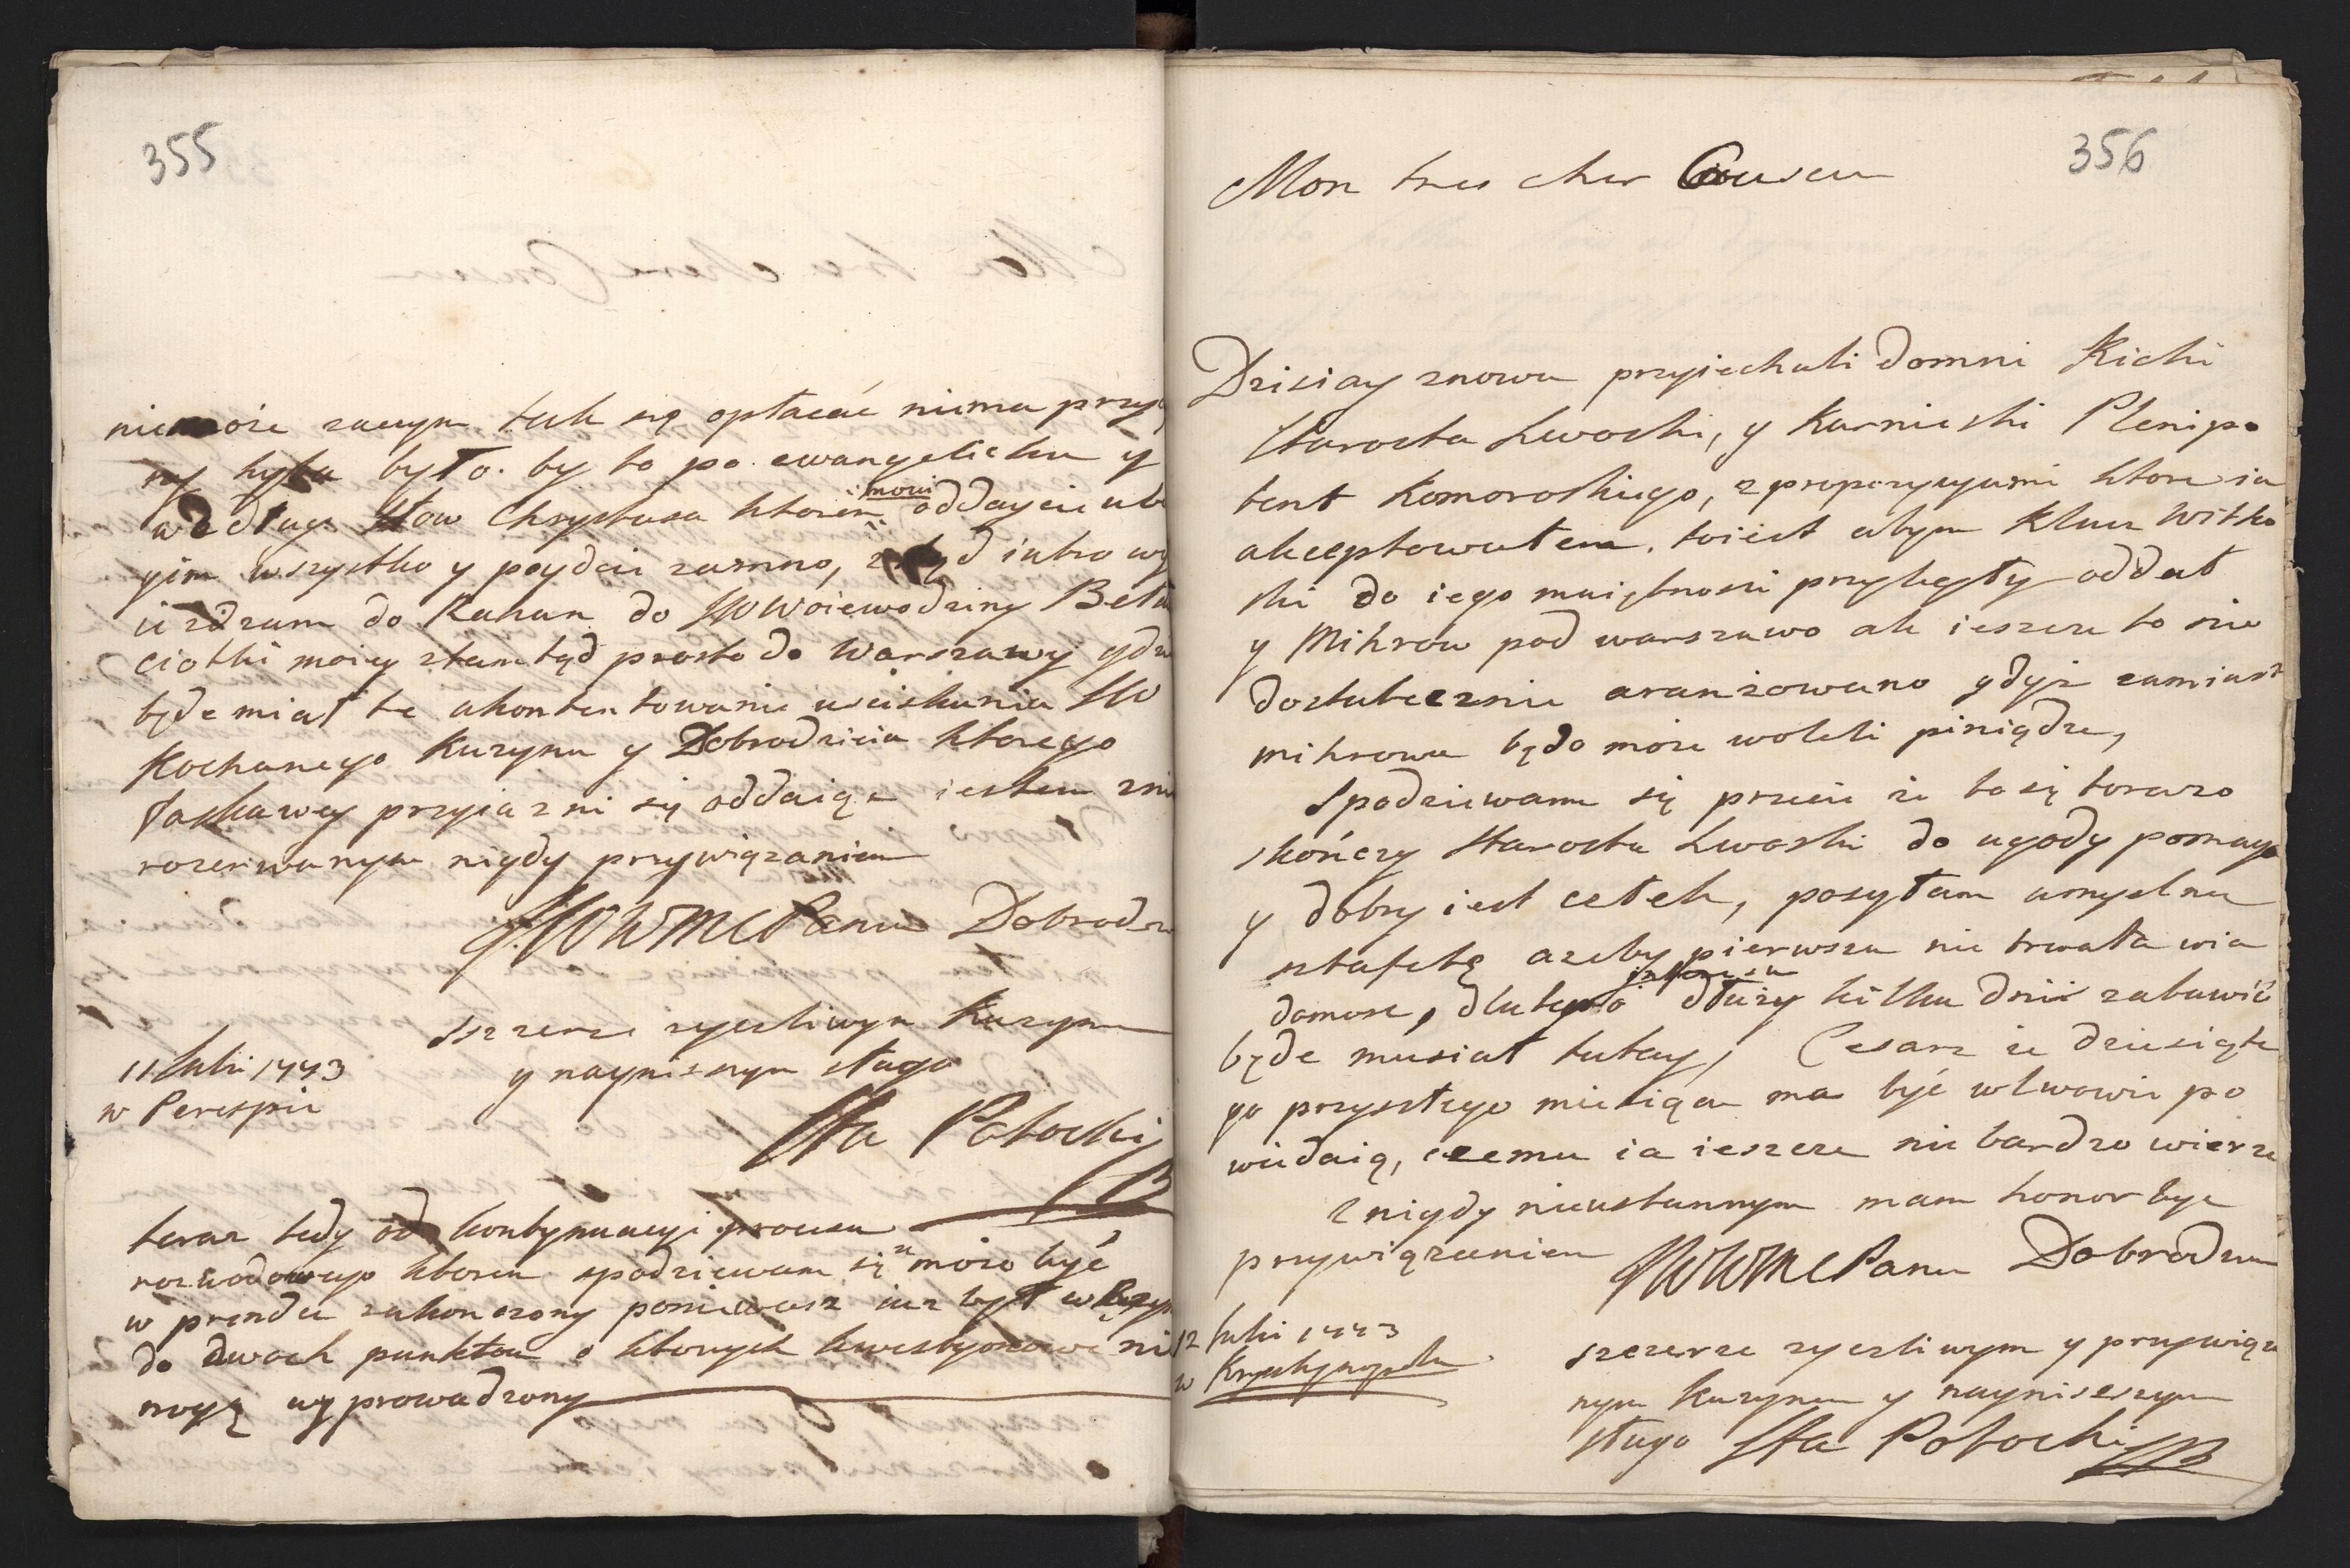 355
niemoże zaczym tak się opłacać niema przy
ny hyba było. by to po ewangelicku y
według słow Chrystusa ktoren mowi oddaycie ubo
gim wszystko y poydcie zamno, ztąd iutro wy
ieżdzam do Rahan do JW Woiewodziny Beł
ciotki moiey ztamtąd prosto do Warszawy gdzie
będe miał te ukontentowanie usciskania JW
Kochanego Kuzyna y Dobrodzieia ktorego
łaskawey przyiazni się oddaiąc iestem znie
rozerwanym nigdy przywiązaniem
JWWMCPana Dobrodzi
Szczerze życzliwym Kuzynem
y nayniższym sługo
11 Julii 1773
w Perespie
Sta Potocki
teraz tedy od kontynuacyi procesu
rozwodowego ktoren spodziewam się może być
w prendce zakonczony poniewasz iuz był w Rzym
do dwoch punktow o ktorych kwestyonowani
nogą wyprowadzony
356
Mon tres cher Cousin
Dzisiay znowu przyiechali domni Kicki
Starosta Lwoski, y Karnicski Plenipo
tent Komoroskiego, z propozycyami ktore ia
akceptowałem. toiest abym Klucz Witko
ski do iego maiętnosci przyległy oddał
y Mikrow pod warszawo ale ieszcze to nie
dostatecznie aranżowano gdyż zamiast
mikrowa będo może woleli piniądze,
Spodziewam się przecie że to się torazo
skończy Starosta Lwoski do ugody pomaga
y dobry iest celek, posyłam umyslna
sztafetę azeby pierwsza nie trwała wia
domosc, dlatego interesu dłuży kilku dni zabawić
będe musiał tutay, Cesarz że dziesiąte
go przyszłego miesiąca ma być w Lwowie po
wiedaią, czemu ia ieszcze nie bardzo wierze
z nigdy nieustannym mam honor być
przywiązaniem JWWMCPana Dobrodzieia
12 Julii 1773
w Krystynopolu
szczerze życzliwym y przywiąza
nym Kuzynem y nayniższym
sługo Sta Potocki